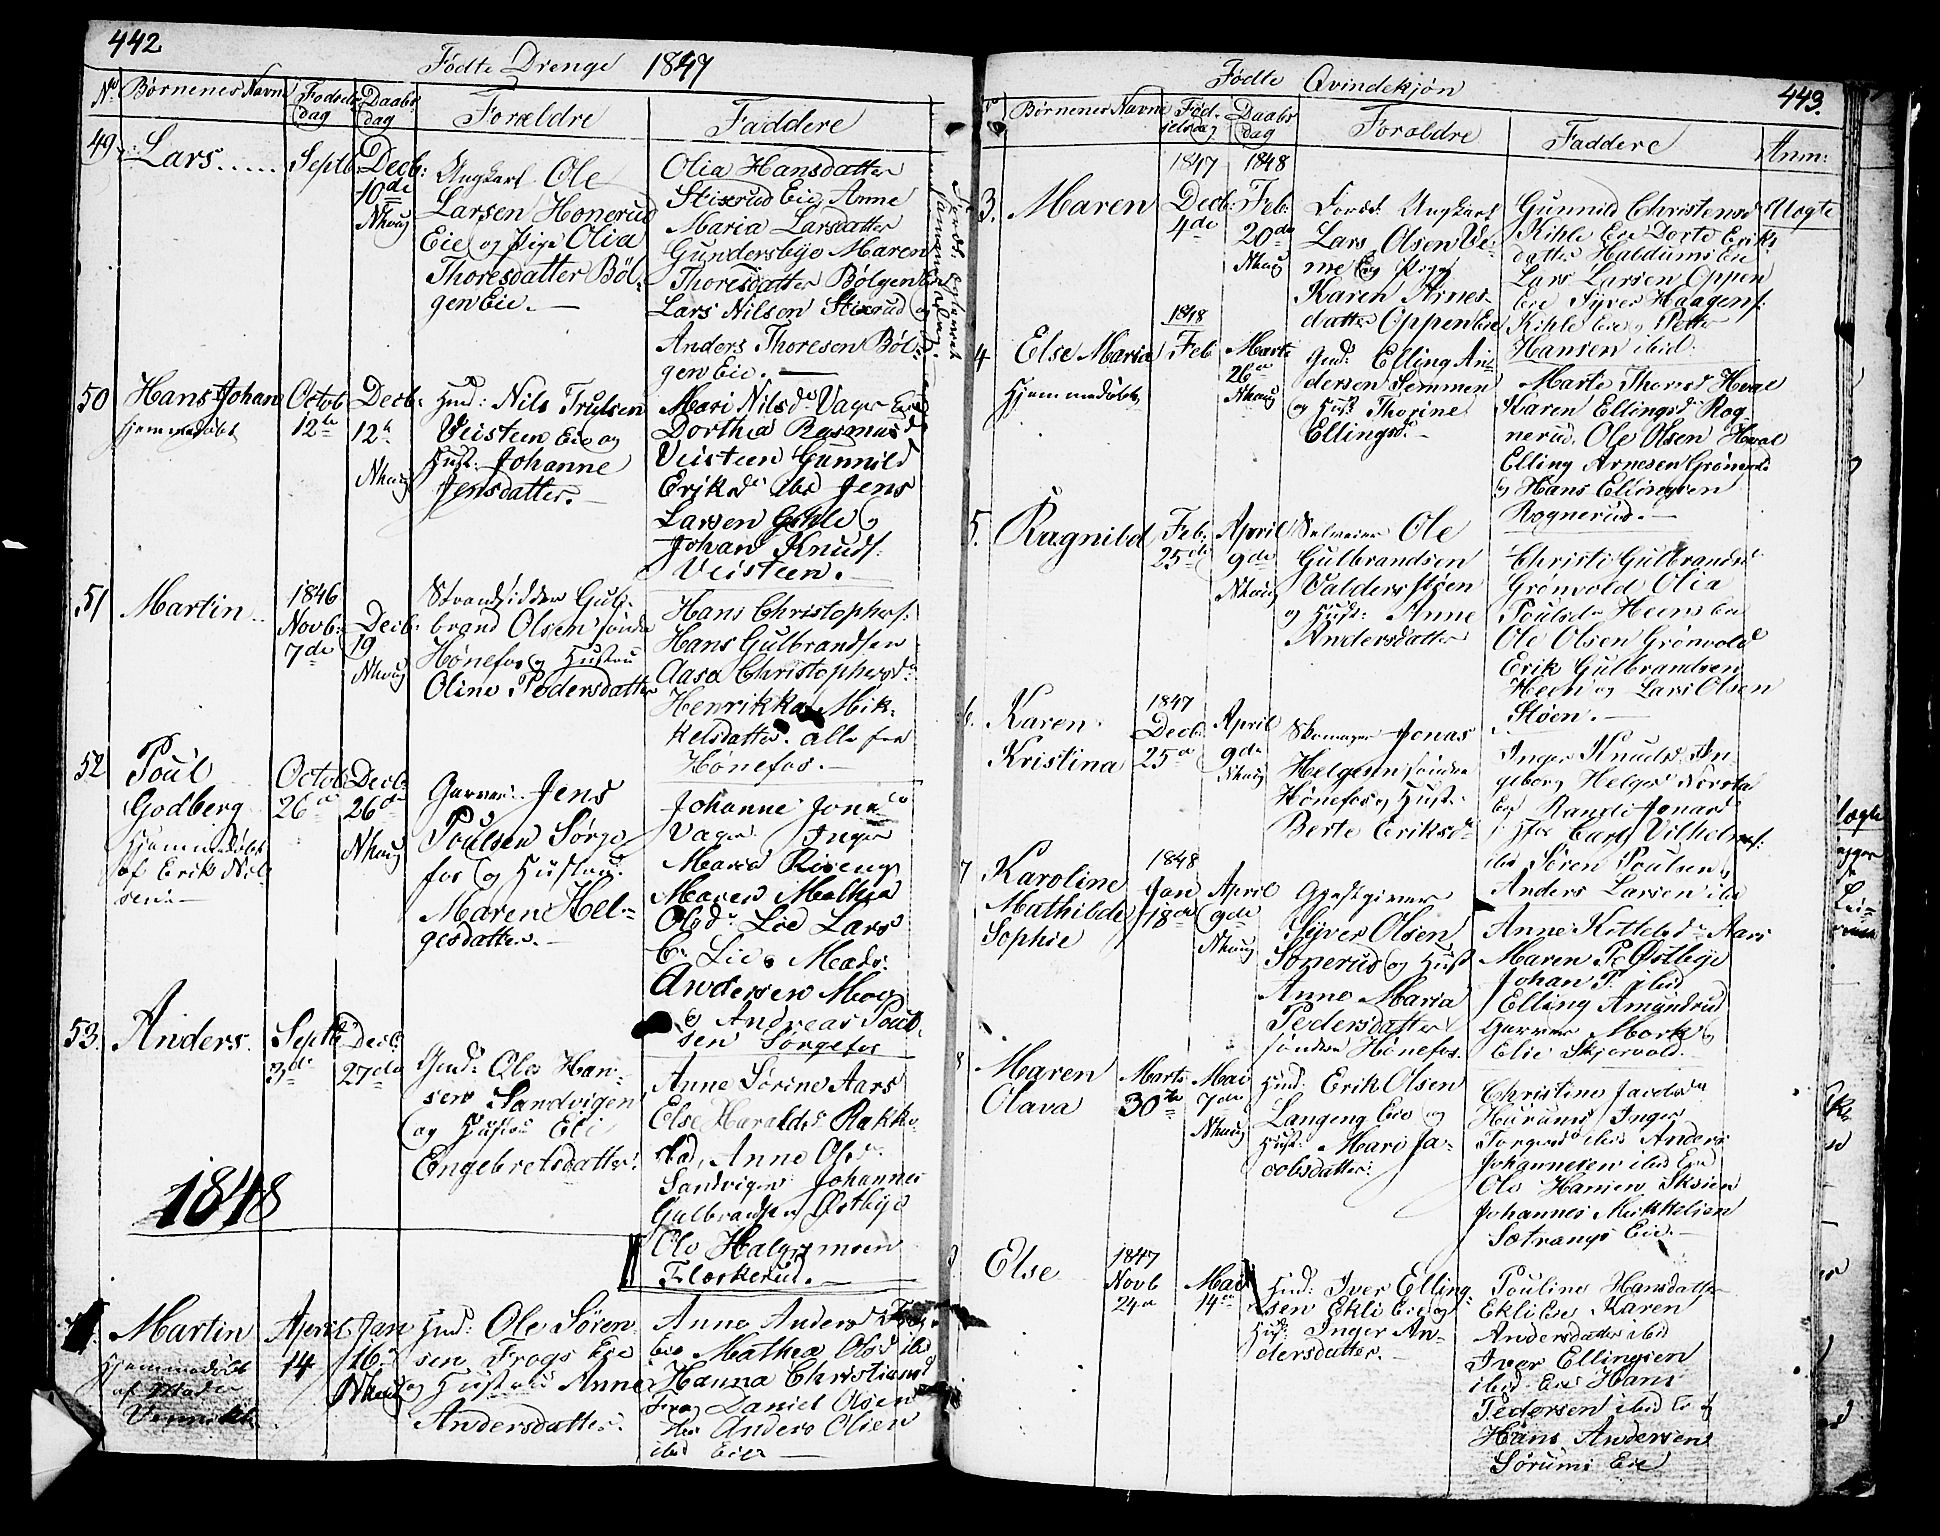 442
Fødte Drenge 1847
No Børnenes Navne Fødsels dag Daabs dag Forældre Faddere
49. Lars..... Septb: Decb: 10de Nhoug
Ungkarl Ole
Larsen Honerud
Eie og Pige Olia
Thoresdatter Böl-
gen Eie. —
Olia Hansdatter
Stixrud Eie, Anne
Maria Larsdatter
Gundersbye Maren
Thoresdatter Bölgen Eie
Lars Nilsen Stixrud og
Anders Thoresen Böl-
gen Eie. —
50 Hans Johan Octob 12te Decb: 12te Nhoug
hjemmedöbt
Hmd: Nils Trulsen
Veisteen Eie og
Hust: Johanne
Jensdatter. —
Mari Nilsdr Vager Eie
Dorthea Rasmusdr
Veisteen Gunnild
Eriksdr ibd Jens
Larsen Gihle og
Johan Knuds:
Veisteen. —
51 Martin.. 1846 Novb: 7de Decb: 19 Nhoug
Strandsidder Gul-
brand Olsen söndre
Hönefos og Hustru
Oline Pedersdatter
Hans Christophers:
Hans Gulbrandsen
Aase Christophersdr
Henrikka Mik-
kelsdatter. alle fra
Honefos. —
52 Poul Godberg Octob 26de Decb: 26de Nhoug
Hjemmedöbt
af Erik Nil-
sen. —
Garver Jens
Poulsen Sørge-
fos og Hustru
Maren Hel-
gesdatter. —
Johanne Jonsdr
Vager Inger
Maria Riseng
Maren Mathea
Olsdr Lie Lars
C. Lie. Mads:
Andersen Moe
og Andreas Poul-
sen Sørgefos
53. Anders. Septb 3de Decb: 27de
Gmd: Ole Han-
sen Sandvigen
og Hustru Eli
Engebretsdatter:
Anne Sørine Aars
Else Haralds Rakke-
stad, Anne Olsdr
Sandvigen Johannes
Gulbrandsen Østbye
Ole Halgrimsen
Flaskerud. —
1848
Martin April 14 Jan 16de Nhoug
Hjemmedöbt
af
Hmd: Ole Sören
sen Frogs Eie
og Hustru Anne
Andersdatter.
Anne Andersdr Frog
Eie Mathea Olsd ibd
Hanna Christiansd
Frog Daniel Olsen
ibd Anders Olsen
ibd Eier —
443.
Fødte Qvindekjön
No Børnenes Navne Fødselsdag Daabs dag Forældre Faddere Anm:
3. Maren 1847 Decb: 4de 1848 Feb: 20de Nhoug
Ungkarl
Lars Olsen Ve-
me Eie Pige
Karen Arnes-
datter Oppen Eie
Gunnild Christensd
Kihle Eie Dorte Eriks
datter Haldums Eie
Lars Larsen Oppen
Eie Syver Haagens:
Kihle Eie og Petter
Hansen ibid:
Uægte
4 Else Maria 1848 Feb Marts 26de Nhoug
Hjemmedöbt
Gmd: Elling An-
dersen Semmen
og Hust Thorine
Ellingsdr —
Marte Thoresdr Hval
Karen Ellingsdr Rog-
nerud. Ole Olsen Hval
Elling Arnesen Grönerud
og Hans Ellingsen
Rognerud. —
5. Ragnild Feb: 25de April 9de Nhoug
Selveier Ole
Gulbrandsen
Valdersstöen
og Hust: Anne
Andersdatter
Christi Gulbrandsdr
Grönvold Olia
Poulsdr Heens Eie
Ole Olsen Grönvold
Erik Gulbrandsen
Heen og Lars Olsen
Stöen. —
6. Karen Kristina 1847 Decb: 25de April 9de Nhoug
Skomager Jonas
Helgesen söndre
Hönefos og Hust.
Berte Eriksdr
Inger Knudsdr In
geborg Helgesdr
Eie Randi Jonasdr
Hfos Carl Vilhelms:
ibd Sören Poulsen,
Anders Larsen ibd
7 Karoline Mathilde Sophie 1848 Jan 18de April 9de Nhoug
Gjestgiver
Syver Olsen
Sonerud og Hust
Anne Maria
Pedersdatter
söndre Hönefos.
Anne Kittelsdr Aars
Maren P. Østbye
Johan P. ibid
Elling Amundrud
Garver Mork og
Elie Skjervold. —
8 Maren Olava Marts 30te Mai 7de Nhoug
Hmd: Erik Olsen
Langeng Eie og
Hust: Mari Ja-
cobsdatter:
Christine Jacobsdr
Hurums Inger
Torgersdr ibid Anders
Johannesen ibid Eie
Ole Hansen Skoien
Johannes Mikkelsen
Sætrangs Eie. —
9 Else 1847 Novb 24de Mai 14de
Hmd: Iver Elling-
sen Ekli Eie og
Hust: Inger An-
dersdatter. —
Pouline Hansdatter
Ekli Eie Karen
Andersdatter ibid
Iver Ellingsen
ibid Eie Hans
Pedersen ibid Eie og
Hans Andersen
Sörums Eie